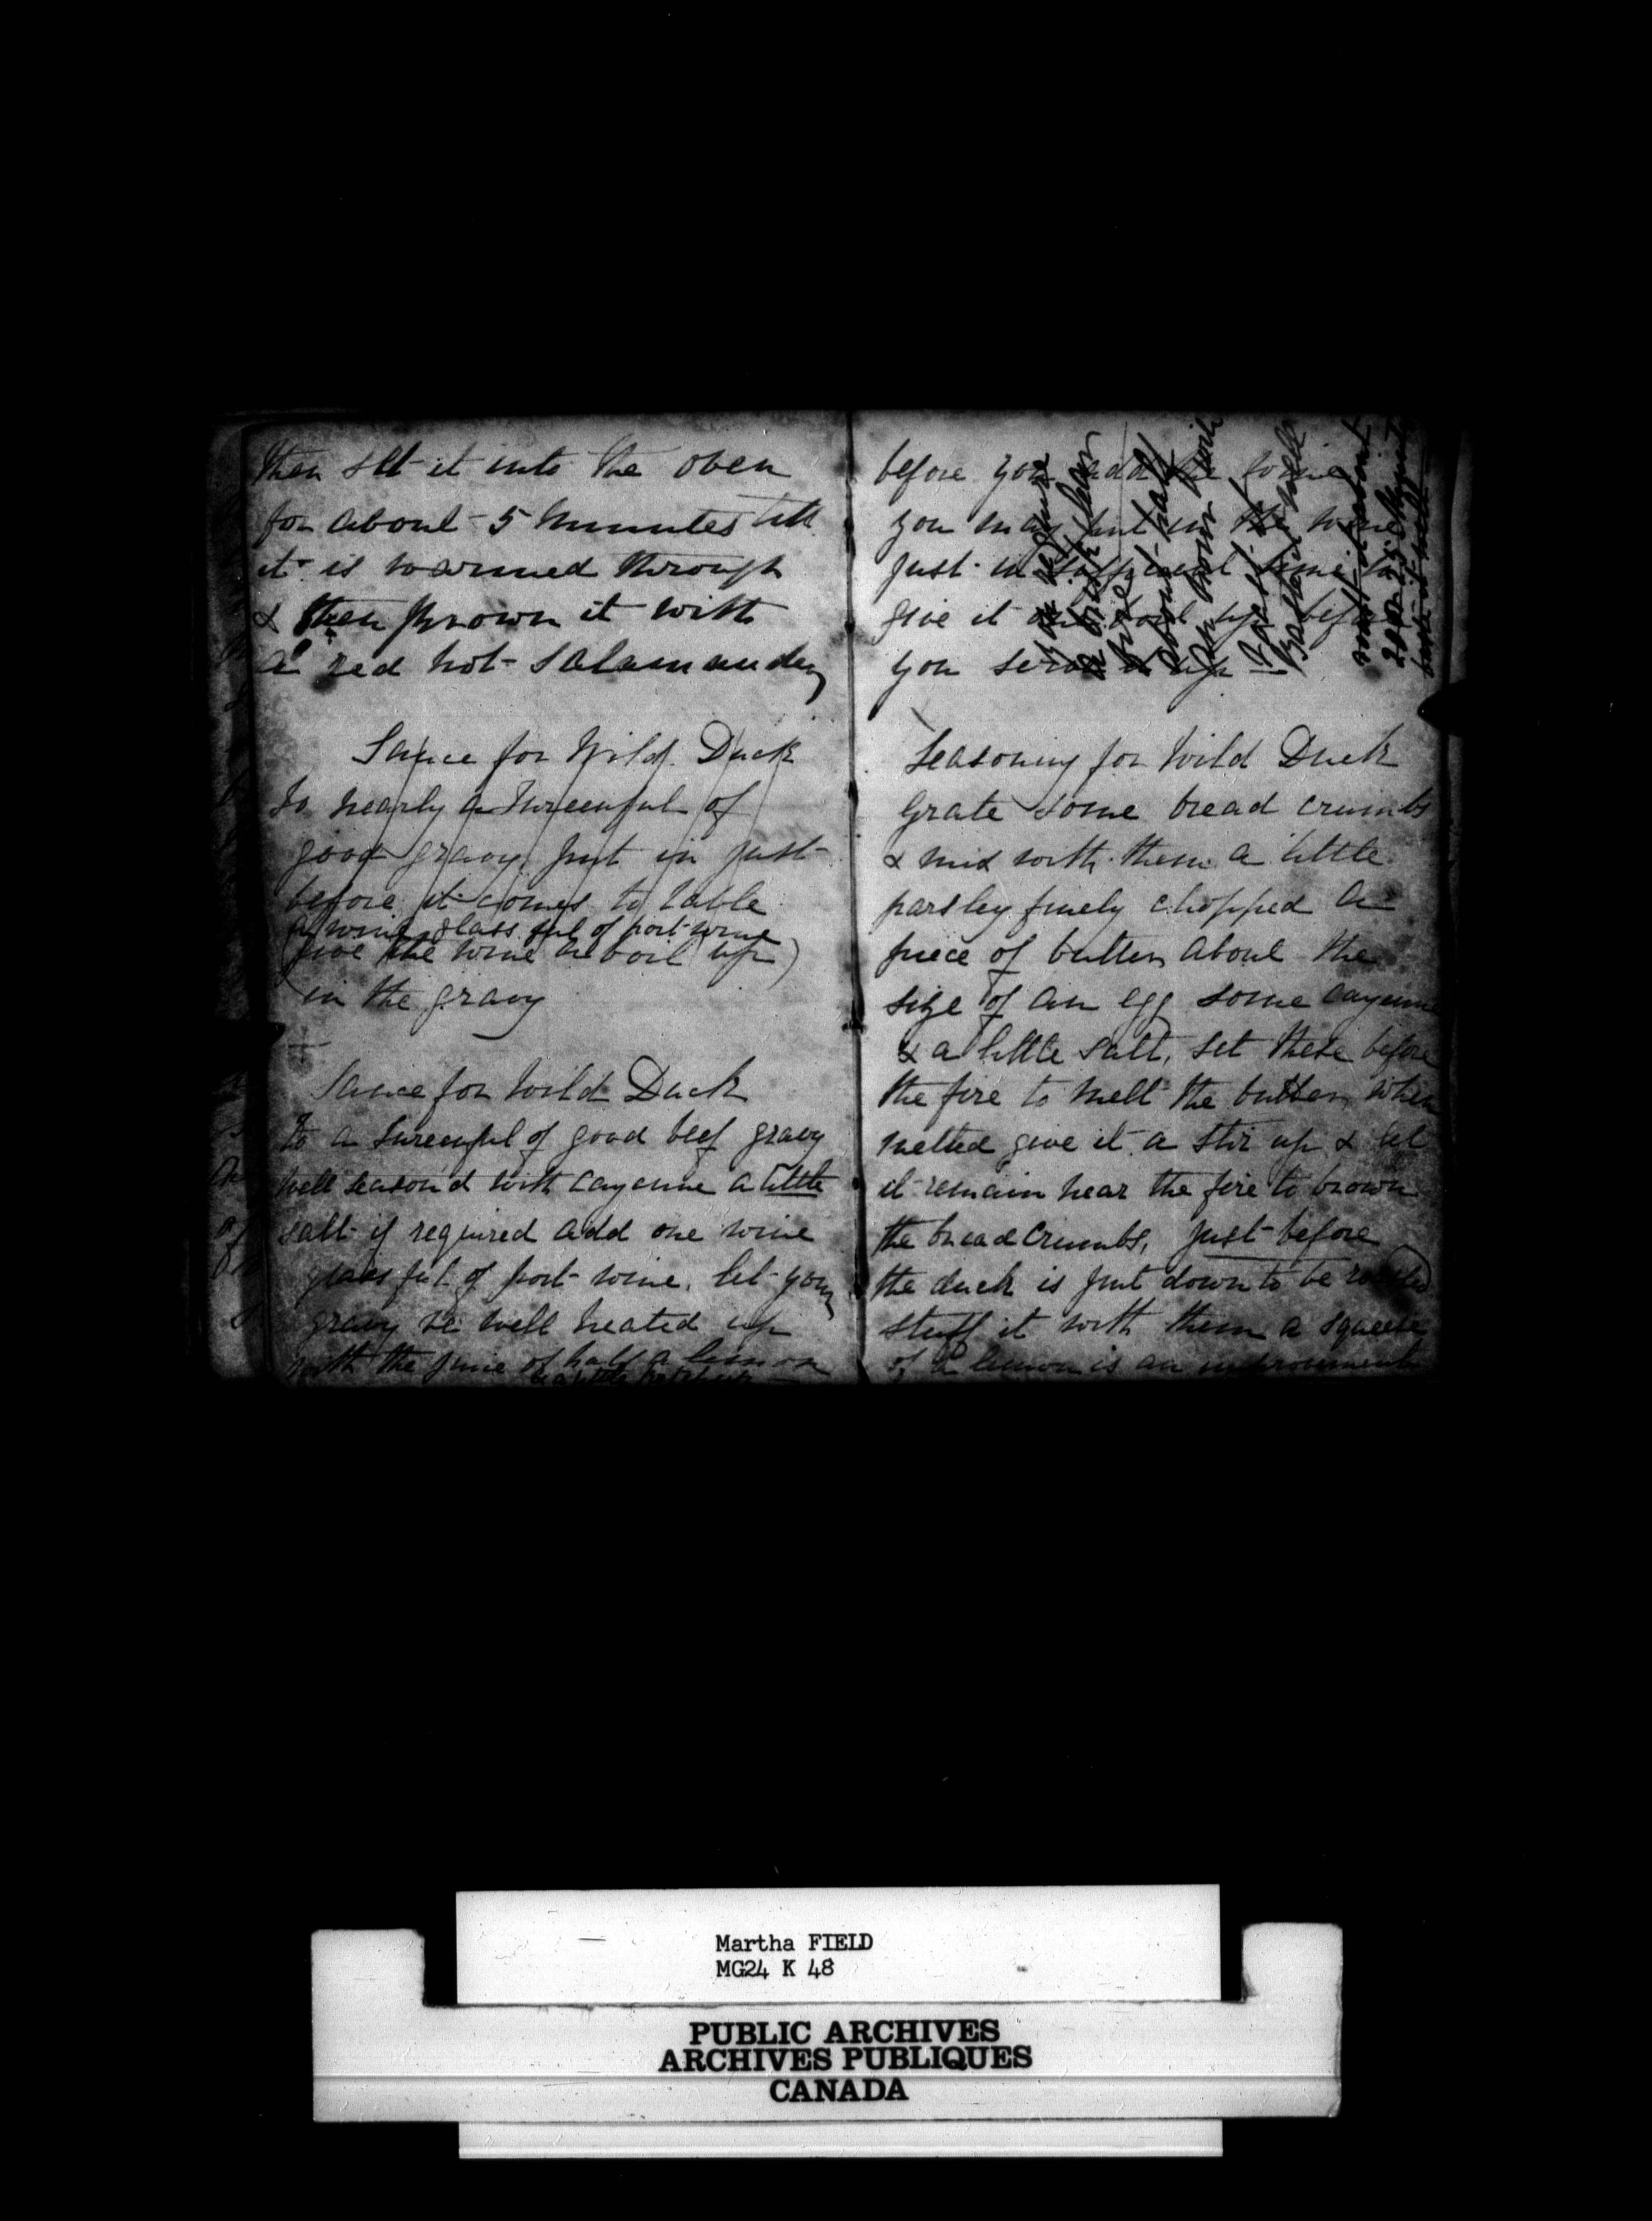 then set it into the oven
for about 5 minutes till
it is warmed through
& then brown it with
a red hot salamander
Sauce for Wild Duck
To nearly a tureenful of
good gravy put in just
before it comes to table
a wine glass ful of port wine
(give the wine a boil up)
in the gravy
Sauce for Wild Duck
to a tureenful of good beef gravy
well season'd with cayenne a little
salt if required add one wine
glass ful of port wine. let your
gravy be well heated up
with the juice of half a lemon
& a little ketchup
before you add the wine
you may put in the wine
just in sufficient time to
give it one boil up before
you serve it up
you require
a brisk clear
fire
about half
an hour with
roast it
Baste it well
Seasoning for Wild Duck
Grate some bread crumbs
& mix with them a little
parsley finely chopped a
piece of butter about the
size of an egg some cayenne
& a little salt, set these before
the fire to melt the butter, when
melted give it a stir up & let
it remain near the fire to brown
the bread crumbs, just before
the duck is put down to be roasted
stuff it with them a squeeze
of a lemon is an improvement
Martha FIELD
MG24 K 48
PUBLIC ARCHIVES
ARCHIVES PUBLIQUES
CANADA